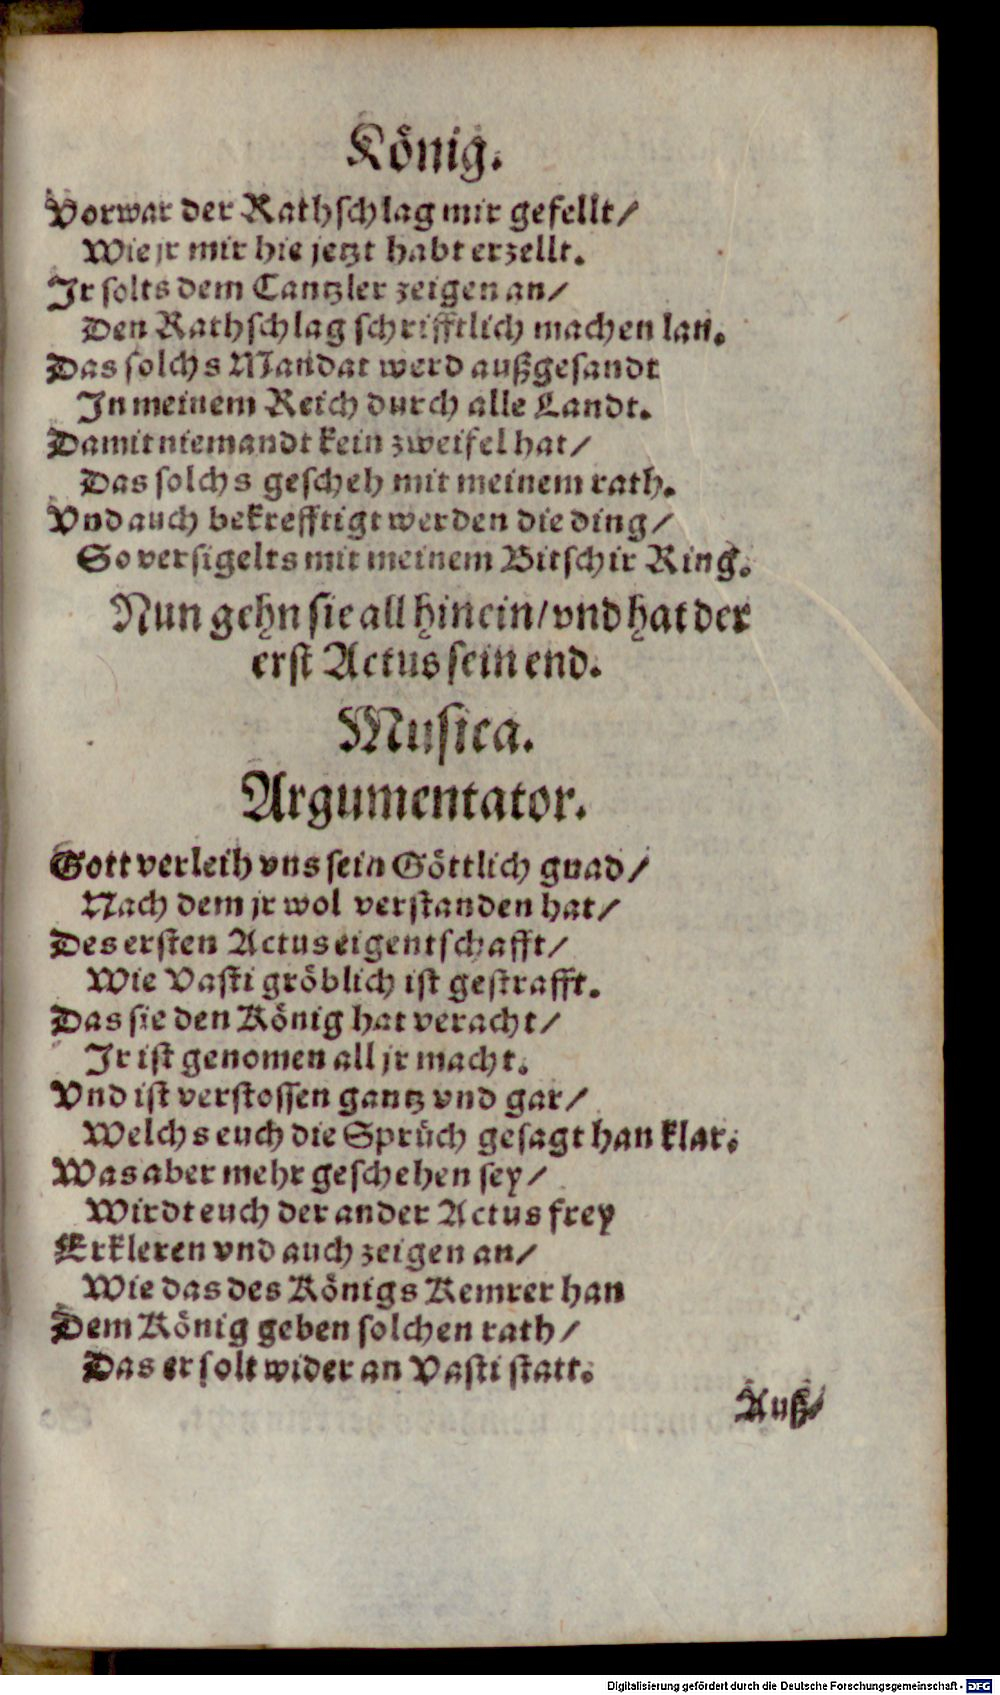 König.
Vorwar der Rathschlag mir gefellt/
Wie jr mir hie jetzt habt erzellt.
Jr solts dem Cantzler zeigen an/
Den Rathschlag schrifftlich machen lan.
Das solchs Mandat werd außgesandt
In meinem Reich durch alle Landt.
Damit niemandt kein zweifel hat/
Das solchs gescheh mit meinem rath.
Vnd auch bekrefftigt werden die ding/
So versigelts mit meinem Bitschir Ring.
Nun gehn sie all hinein/vnd hat der
erst Actus sein end.
Musica.
Argumentator.
Gott verleih vns sein Göttlich gnad/
Nach dem jr wol verstanden hat/
Des ersten Actus eigentschafft/
Wie Vasti gröblich ist gestrafft.
Das sie den König hat veracht/
Jr ist genomen all jr macht.
Vnd ist verstossen gantz vnd gar/
Welchs euch die Sprüch gesagt han klar.
Was aber mehr geschehen sey/
Wirdt euch der ander Actus frey
Erkleren vnd auch zeigen an/
Wie das des Königs Kemrer han
Dem König geben solchen rath/
Das er solt wider an Vasti statt.
Auß/
Digitalisierung gefördert durch die Deutsche Forschungsgemeinschaft - DFG